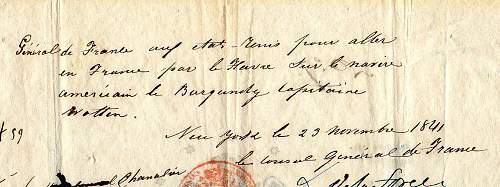 Général de France aux états-Unis pour aller
en France par le Havre sur le navire
américain le Burgundy capitaine
Wotten.
New York le 23 novembre 1841
№ 59
le consul Général de France
Chancelier